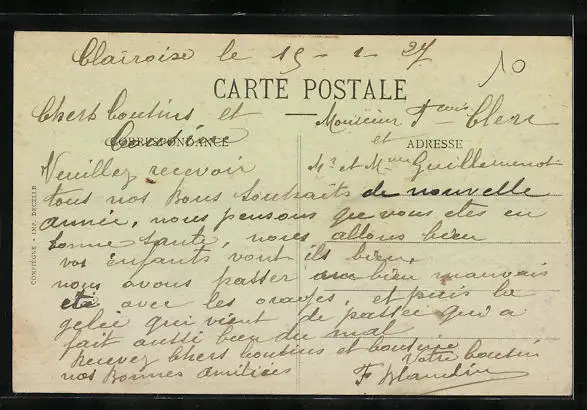 Clairoise le 15-1-27
10
CARTE POSTALE
Chers Coutins et Coutine
CORRESPONDANCE
Monsieur Fcois Clerc
et
ADRESSE
Mr et Mme Guillemenot
Veuillez recevoir
tous nos Bons Souhaits de nouvelle
année, nous pensons que vous etes en
bonne Santé, nous allons bien
vos enfants vont ils bien,
nous avons passer un bien mauvais
été avec les orages, et puis la
gelée qui vient de passée qui a
fait aussi bien du mal
Recevez Chers Coutins et Coutine
nos Bonnes Amitiées
Votre Coutin
F Blandin
COMPIÈGNE - IMP. DECELLE